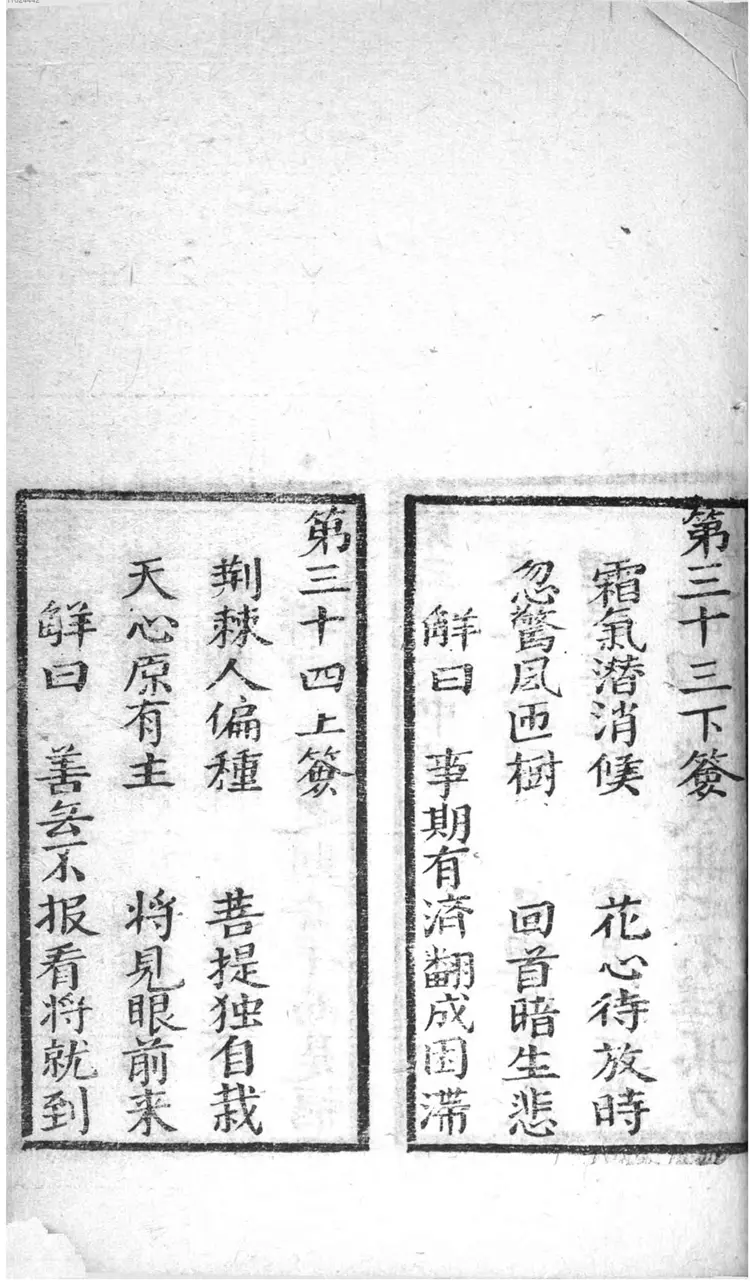 第三十三下籖
霜氣潜消候 花心待放時
忽驚風匝樹 回首暗生悲
解曰 事期有濟翻成困滞
第三十四上籖
荆棘人偏種 菩提独自栽
天心原有主 将見眼前来
解曰 善无不报看将就到